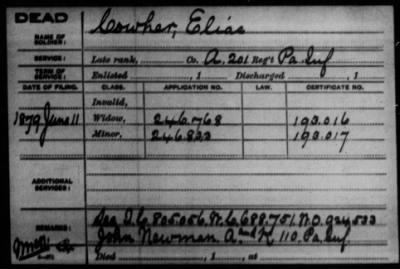 DEAD
NAME OF SOLDIER: Cowher, Elias
SERVICE: Late rank, Co. A, 201 Reg't Pa Inf
TERM OF SERVICE: Enlisted , 1 Discharged , 1
DATE OF FILING. CLASS. APPLICATION NO. LAW. CERTIFICATE NO.
Invalid,
1879 June 11 Widow, 246.768 190.016
Minor, 246.823 190.017
ADDITIONAL SERVICES:
REMARKS: See I.C 805.056, W.C 688.751, W.O. 924533
John Newman A and K 110, Pa Inf
Died , 1 , at